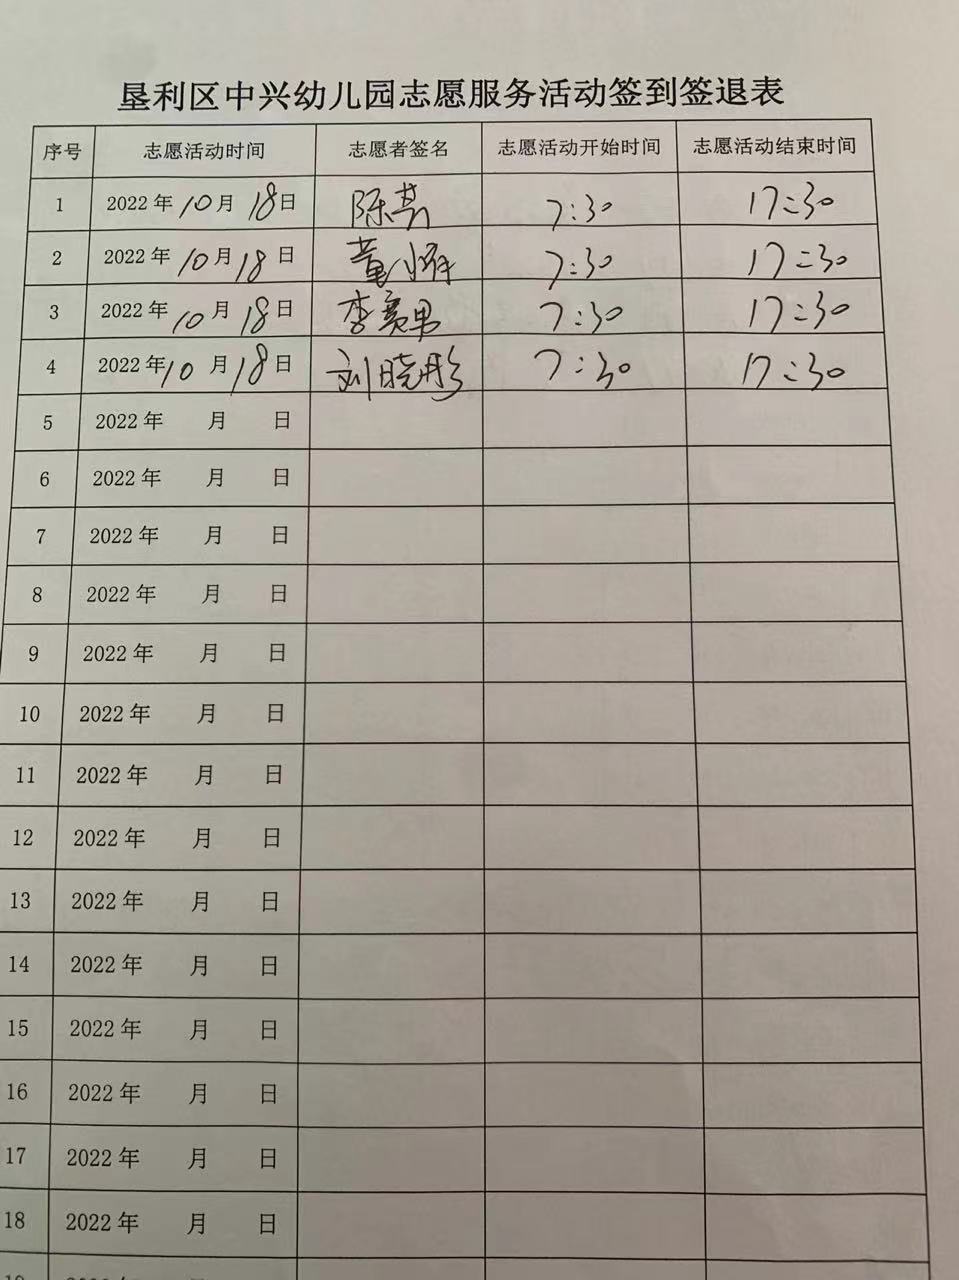 垦利区中兴幼儿园志愿服务活动签到签退表
序号 志愿活动时间 志愿者签名 志愿活动开始时间 志愿活动结束时间
1 2022年10月18日 陈 7:30 17:30
2 2022年10月18日 董小 7:30 17:30
3 2022年10月18日 李赛男 7:30 17:30
4 2022年10月18日 刘晓彤 7:30 17:30
5 2022年 月 日
6 2022年 月 日
7 2022年 月 日
8 2022年 月 日
9 2022年 月 日
10 2022年 月 日
11 2022年 月 日
12 2022年 月 日
13 2022年 月 日
14 2022年 月 日
15 2022年 月 日
16 2022年 月 日
17 2022年 月 日
18 2022年 月 日